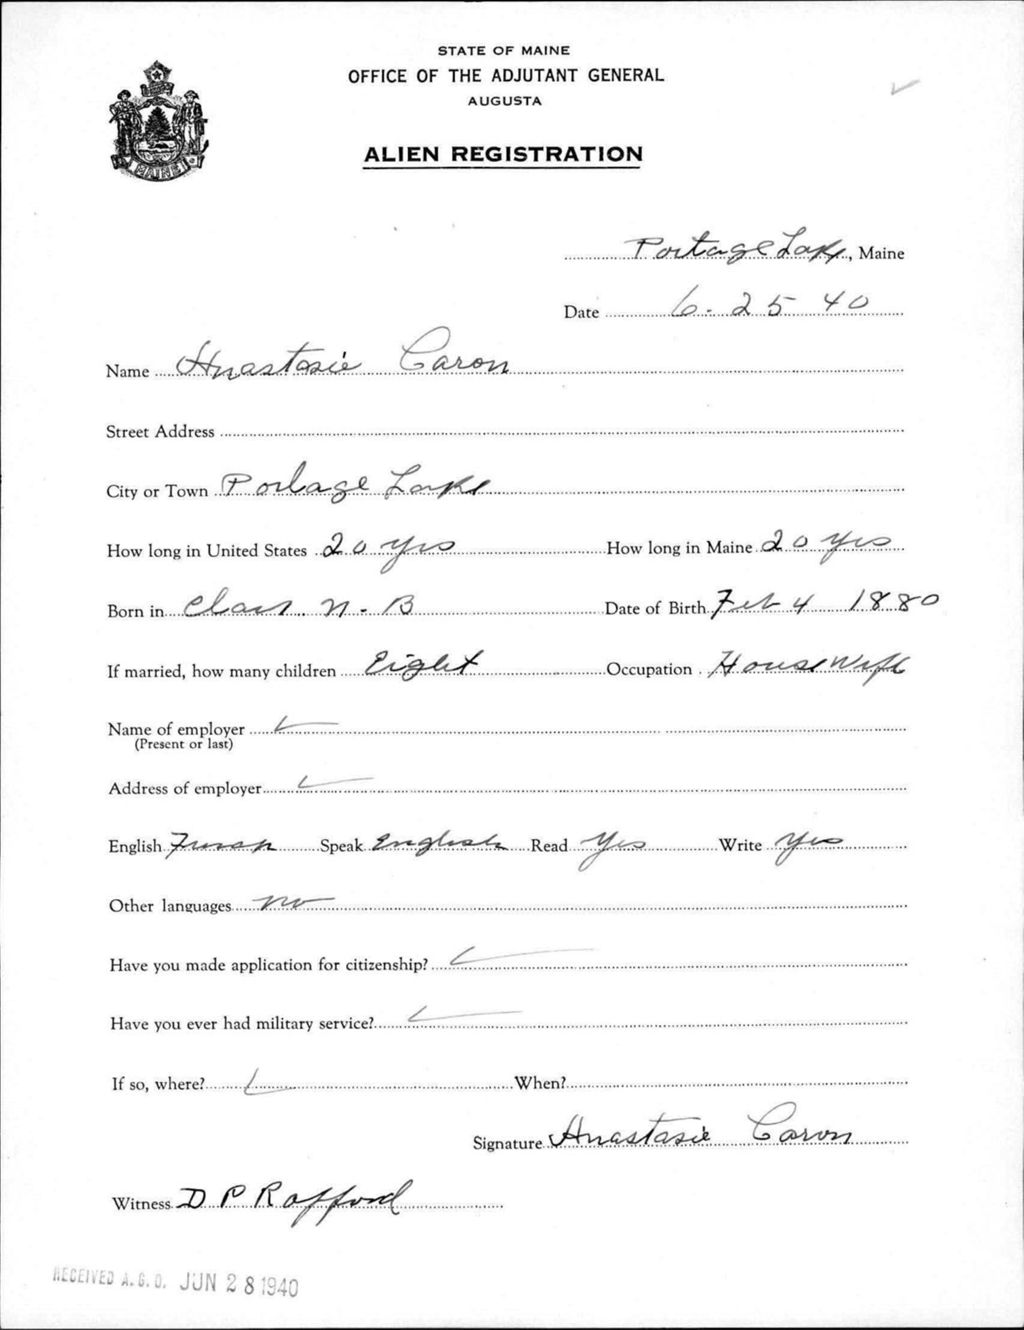 STATE OF MAINE
OFFICE OF THE ADJUTANT GENERAL
AUGUSTA
ALIEN REGISTRATION
MAINE
Portage Lake, Maine
Date 6-25 40
Name Anastasie Caron
Street Address
City or Town Portage Lake
How long in United States 20 yrs How long in Maine 20 yrs
Born in Clair N-B Date of Birth Feb 4 1880
If married, how many children Eight Occupation House Wife
Name of employer
(Present or last)
Address of employer
English Speak English Read Yes Write Yes
Other languages no
Have you made application for citizenship?
Have you ever had military service?
If so, where? When?
Signature Anastasie Caron
Witness D P Rafford
RECEIVED A.G.O. JUN 28 1940